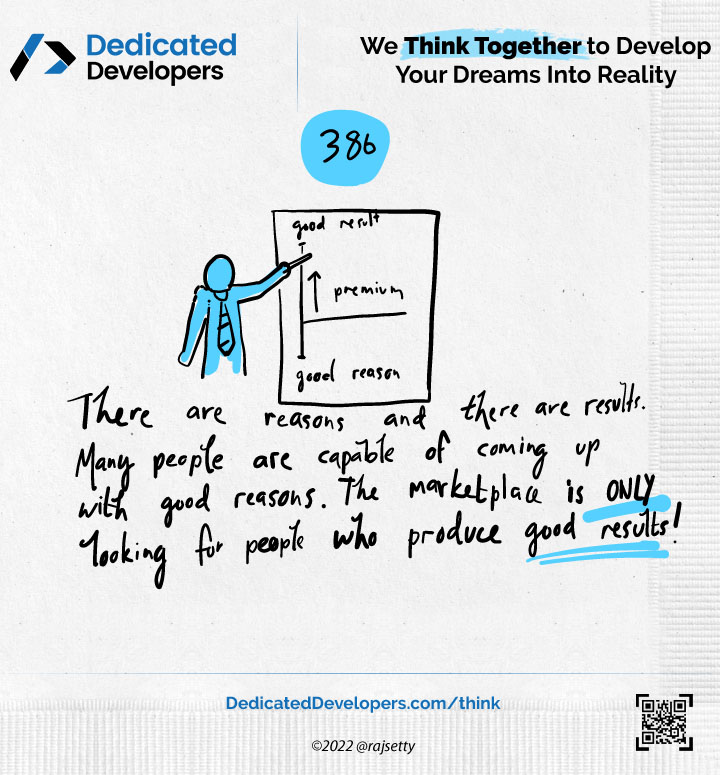 Dedicated
Developers
We Think Together to Develop
Your Dreams Into Reality
386
good result
premium
good reason
There are reasons and there are results.
Many people are capable of coming up
with good reasons. The marketplace is ONLY
looking for people who produce good results!
DedicatedDevelopers.com/think
©2022 @rajsetty